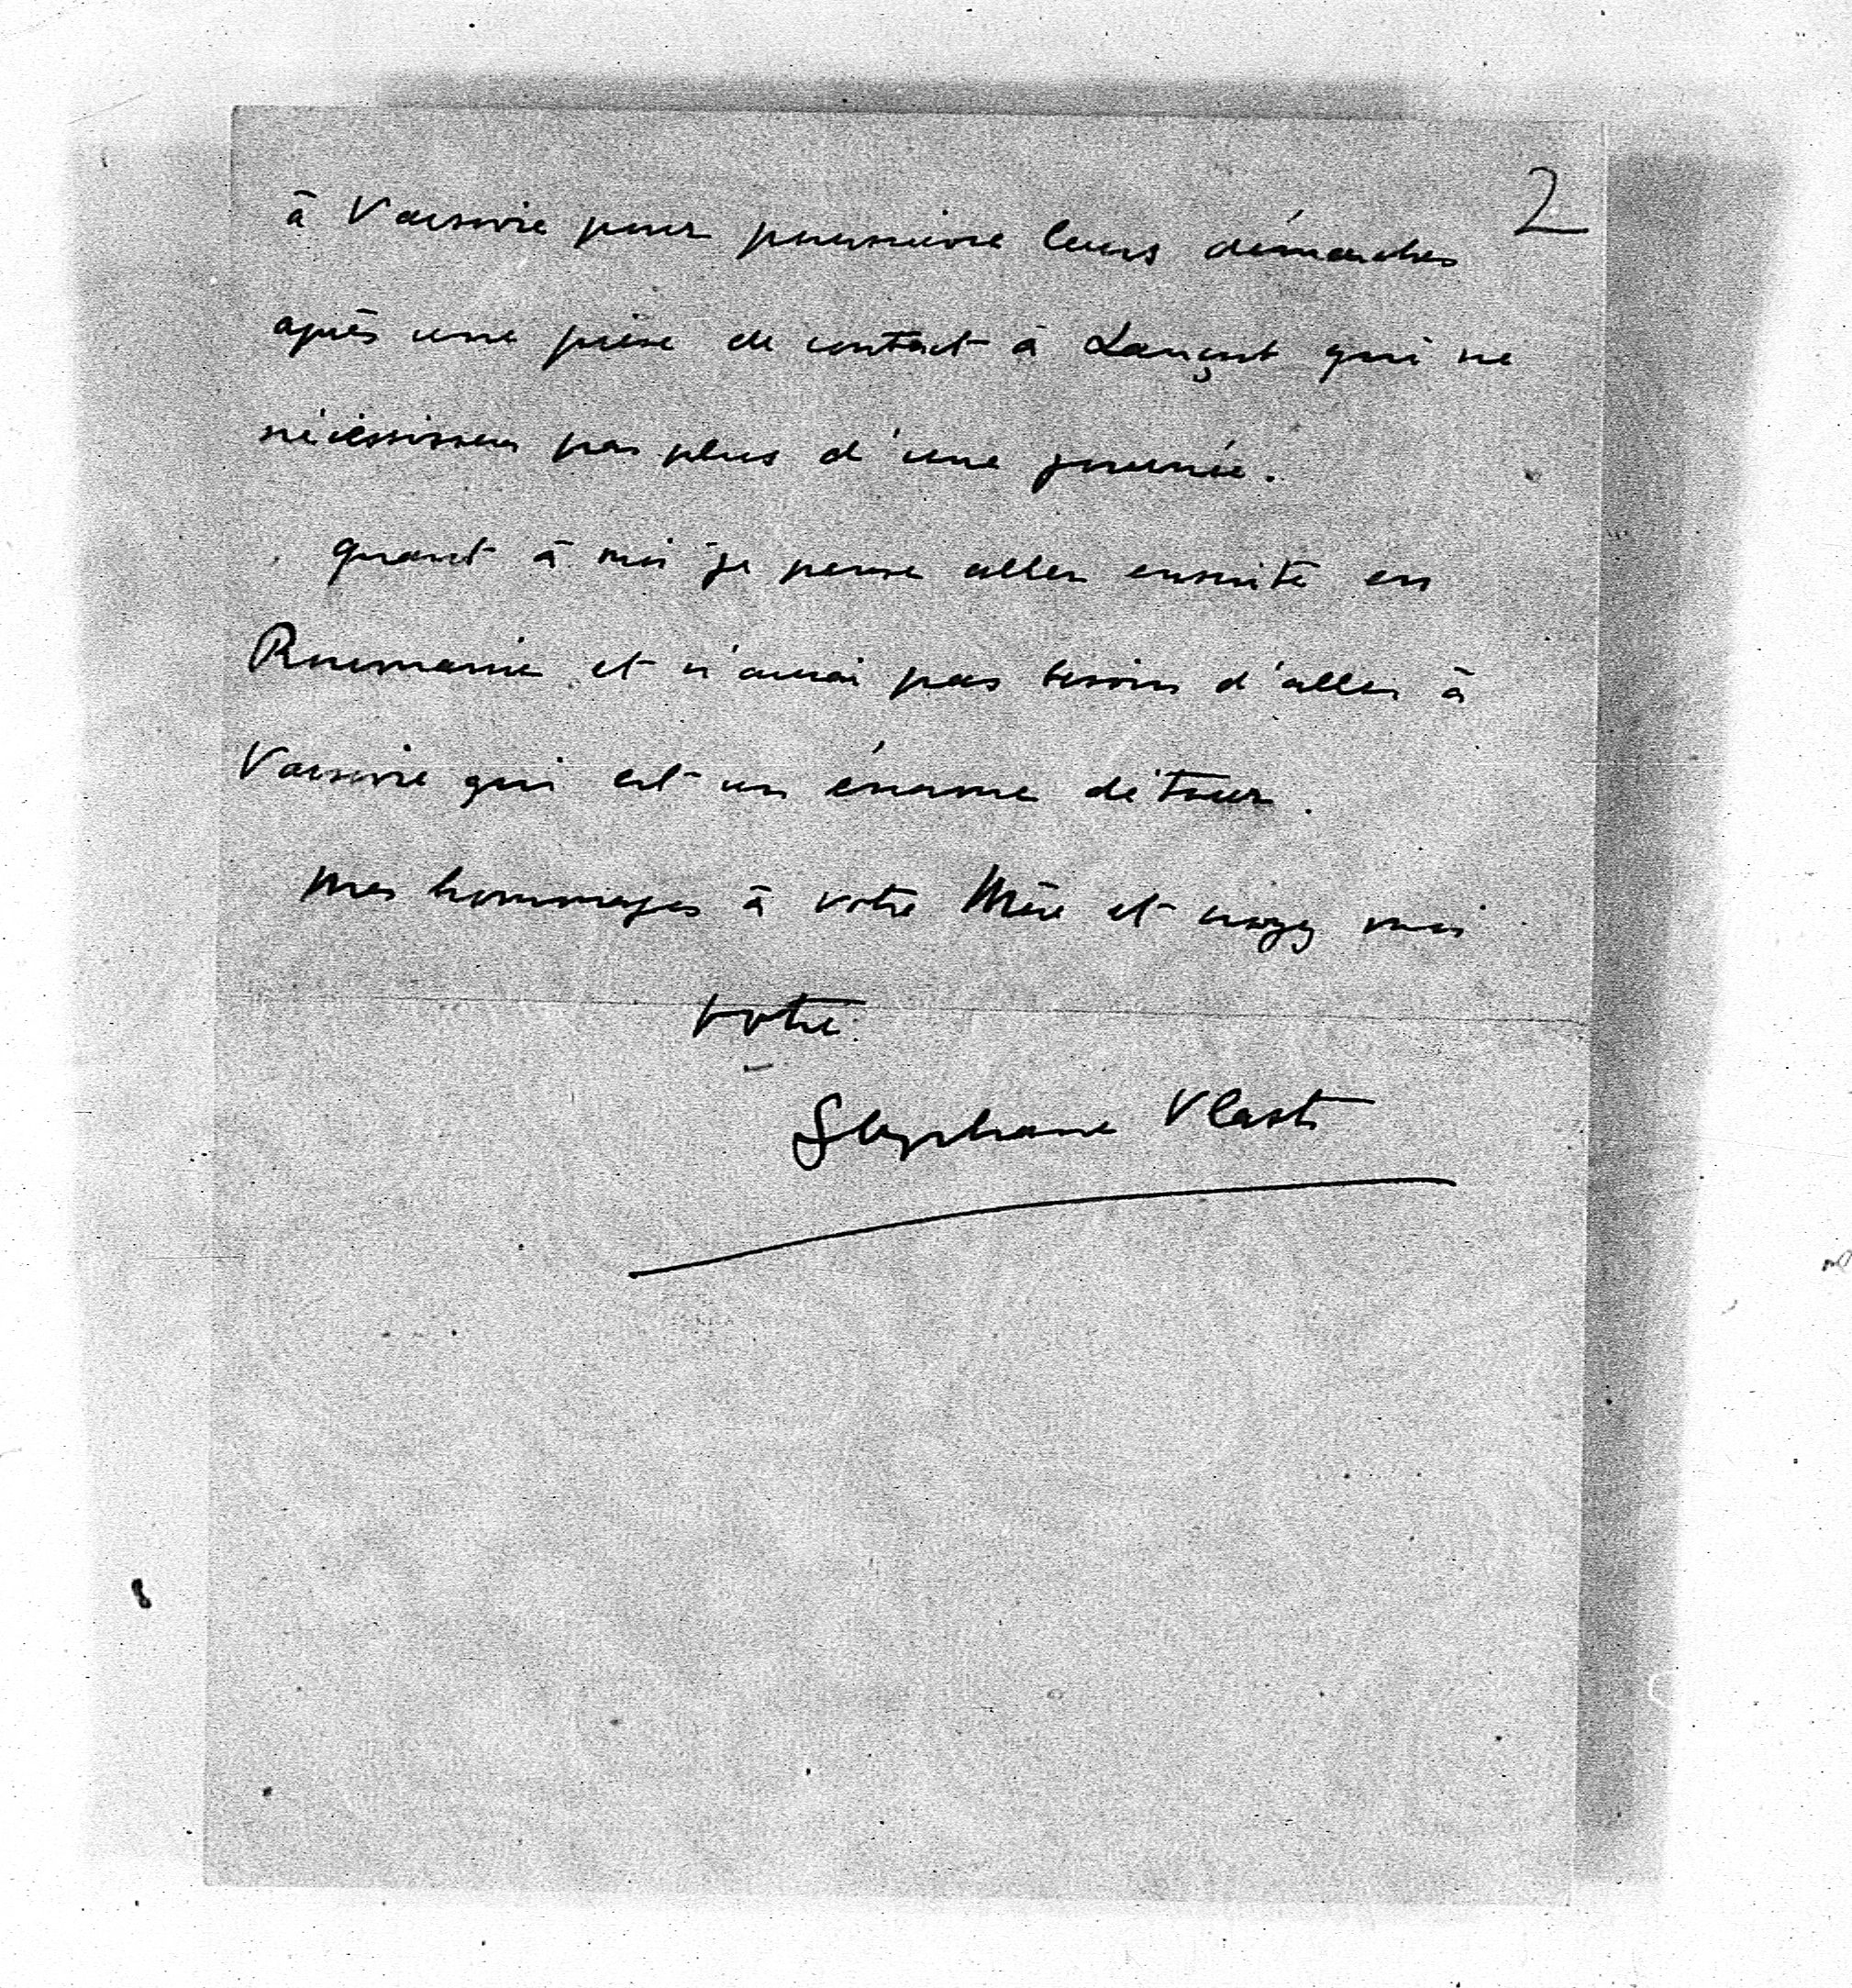 2
à Varsovie pour poursuivre leurs démarches
après une prise de contact à Lançut qui ne
pas plus d'une journée.
quant à moi je pense aller ensuite en
Roumanie et n'aurai pas besoin d'aller à
Varsovie qui est un énorme détour.
Mes hommages à votre Mère et croyez moi
votre
Stéphane Vlasto